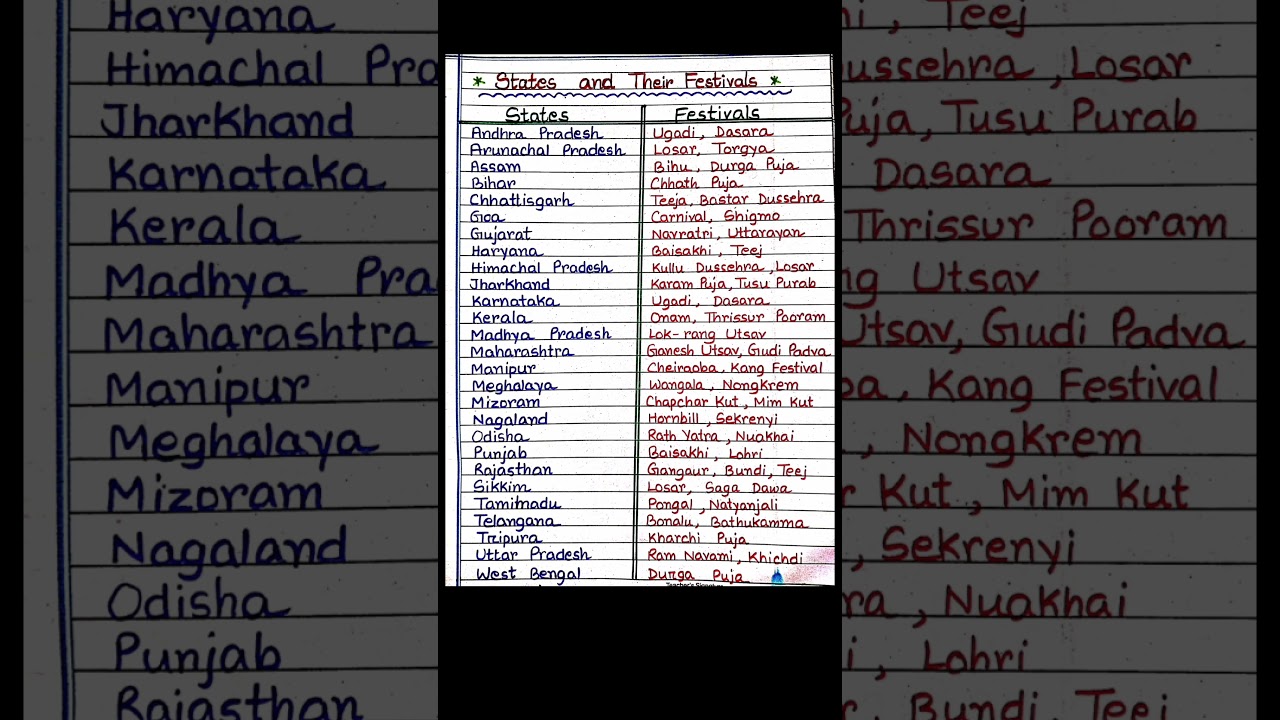 * States and Their Festivals *
States Festivals
Andhra Pradesh Ugadi, Dasara
Arunachal Pradesh Losar, Torgya
Assam Bihu, Durga Puja
Bihar Chhath Puja
Chhattisgarh Teeja, Bastar Dussehra
Goa Carnival, Shigmo
Gujarat Navratri, Uttarayan
Haryana Baisakhi, Teej
Himachal Pradesh Kullu Dussehra, Losar
Jharkhand Karam Puja, Tusu Purab
Karnataka Ugadi, Dasara
Kerala Onam, Thrissur Pooram
Madhya Pradesh Lok-rang Utsav
Maharashtra Ganesh Utsav, Gudi Padva
Manipur Cheiraoba, Kang Festival
Meghalaya Wangala, Nongkrem
Mizoram Chapchar Kut, Mim Kut
Nagaland Hornbill, Sekrenyi
Odisha Rath Yatra, Nuakhai
Punjab Baisakhi, Lohri
Rajasthan Gangaur, Bundi, Teej
Sikkim Losar, Saga Dawa
Tamilnadu Pongal, Natyanjali
Telangana Bonalu, Bathukamma
Tripura Kharchi Puja
Uttar Pradesh Ram Navami, Khichdi
West Bengal Durga Puja
Teacher's Signature
Haryana
Himachal Pra
Jharkhand
Karnataka
Kerala
Madhya Pra
Maharashtra
Manipur
Meghalaya
Mizoram
Nagaland
Odisha
Punjab
Rajasthan
hi, Teej
ussehra, Losar
Puja, Tusu Purab
Dasara
Thrissur Pooram
ng Utsav
Utsav, Gudi Padva
ba, Kang Festival
, Nongkrem
r Kut, Mim Kut
, Sekrenyi
ra, Nuakhai
i, Lohri
r, Bundi, Teej